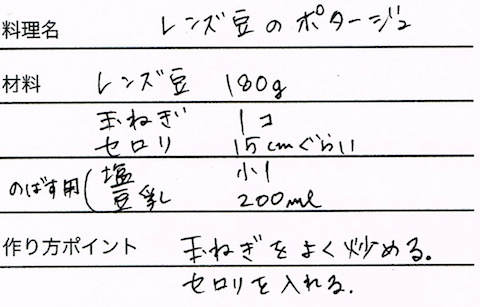 料理名 レンズ豆のポタージュ
材料 レンズ豆 180g
玉ねぎ 1コ
セロリ 15cmぐらい
のばす用( 塩 小1
豆乳 200ml
作り方ポイント 玉ねぎをよく炒める。
セロリを入れる。